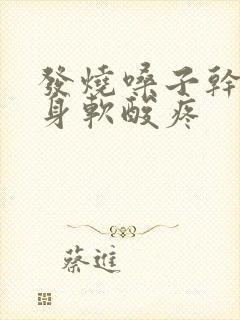 發燒嗓子幹
身軟酸疼
蔡進